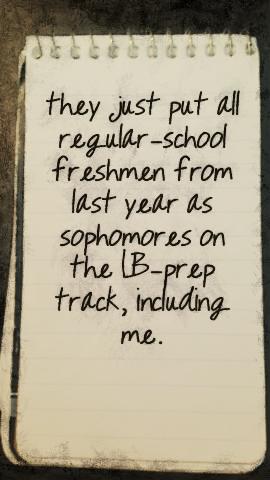 they just put all
regular-school
freshmen from
last year as
sophomores on
the IB-prep
track, including
me.